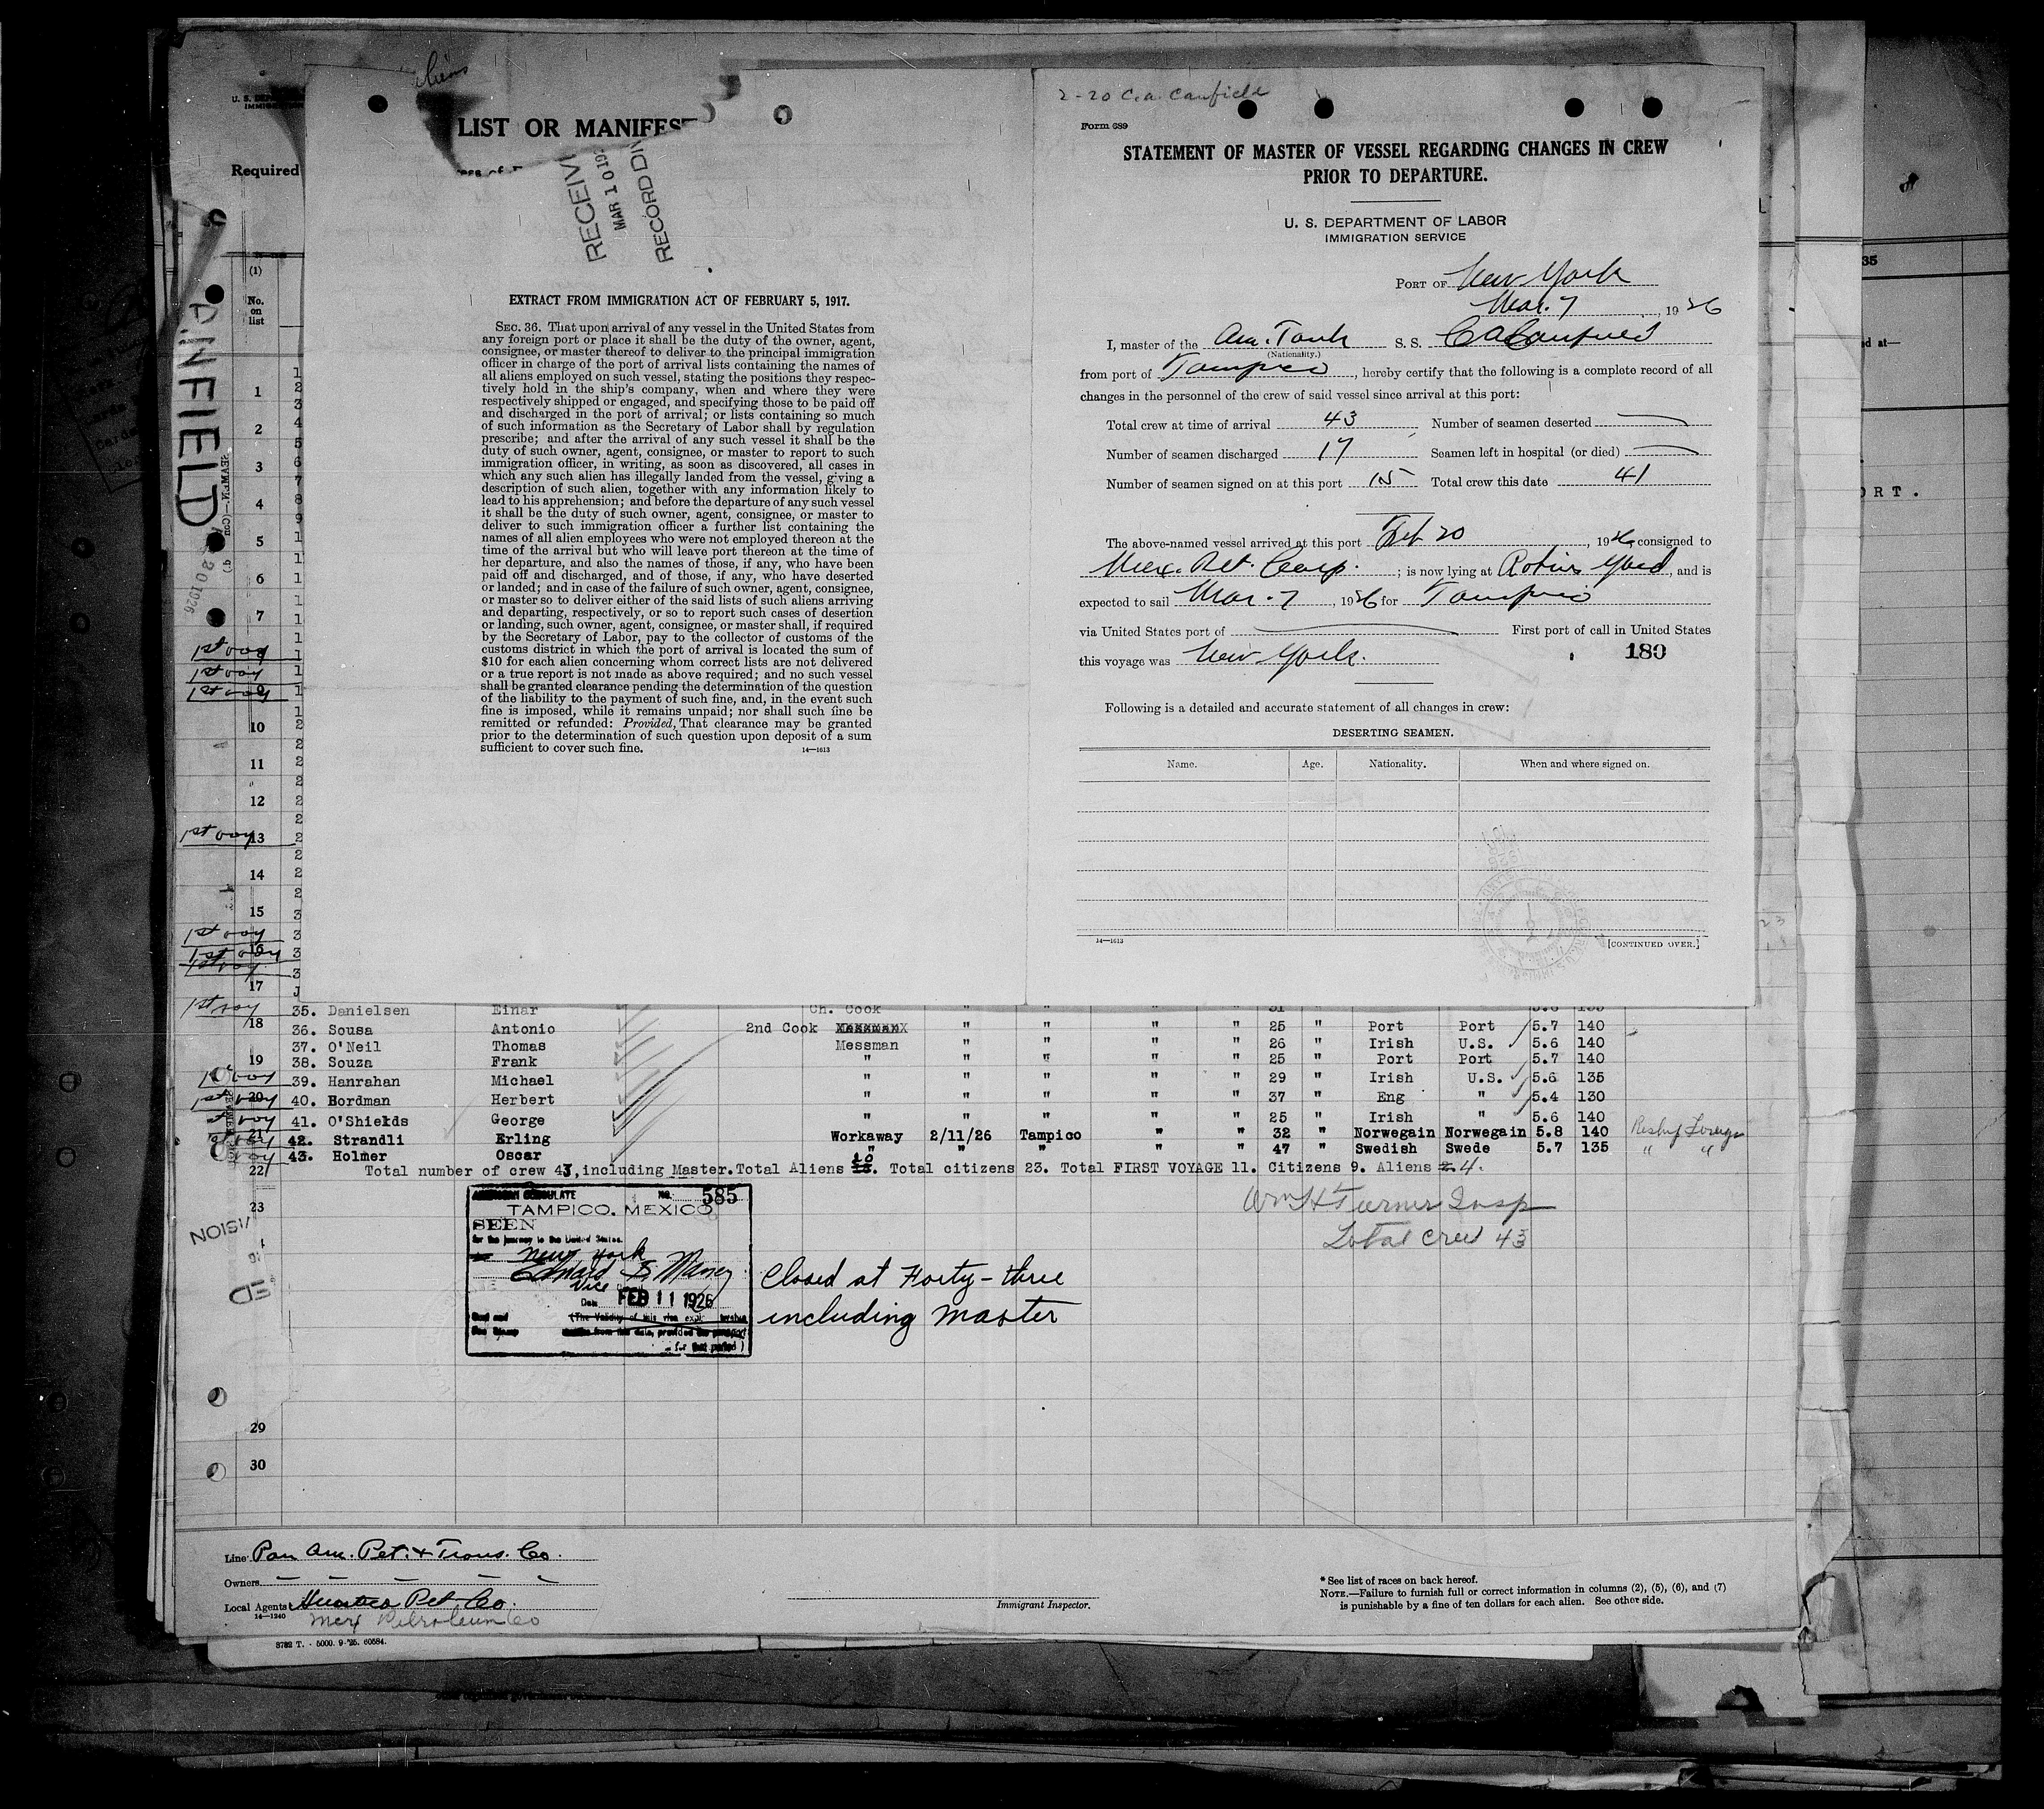 LIST OR MANIFEST
RECEIV
MAR 10 192
RECORD DIV
EXTRACT FROM IMMIGRATION ACT OF FEBRUARY 5, 1917.
SEC. 36. That upon arrival of any vessel in the United States from
any foreign port or place it shall be the duty of the owner, agent,
consignee, or master thereof to deliver to the principal immigration
officer in charge of the port of arrival lists containing the names of
all aliens employed on such vessel, stating the positions they respec-
tively hold in the ship's company, when and where they were
respectively shipped or engaged, and specifying those to be paid off
and discharged in the port of arrival; or lists containing so much
of such information as the Secretary of Labor shall by regulation
prescribe; and after the arrival of any such vessel it shall be the
duty of such owner, agent, consignee, or master to report to such
immigration officer, in writing, as soon as discovered, all cases in
which any such alien has illegally landed from the vessel, giving a
description of such alien, together with any information likely to
lead to his apprehension; and before the departure of any such vessel
it shall be the duty of such owner, agent, consignee, or master to
deliver to such immigration officer a further list containing the
names of all alien employees who were not employed thereon at the
time of the arrival but who will leave port thereon at the time of
her departure, and also the names of those, if any, who have been
paid off and discharged, and of those, if any, who have deserted
or landed; and in case of the failure of such owner, agent, consignee,
or master so to deliver either of the said lists of such aliens arriving
and departing, respectively, or so to report such cases of desertion
or landing, such owner, agent, consignee, or master shall, if required
by the Secretary of Labor, pay to the collector of customs of the
customs district in which the port of arrival is located the sum of
$10 for each alien concerning whom correct lists are not delivered
or a true report is not made as above required; and no such vessel
shall be granted clearance pending the determination of the question
of the liability to the payment of such fine, and, in the event such
fine is imposed, while it remains unpaid; nor shall such fine be
remitted or refunded: Provided, That clearance may be granted
prior to the determination of such question upon deposit of a sum
sufficient to cover such fine.
14—1613
2-20 C.A. Canfield
Form 689
STATEMENT OF MASTER OF VESSEL REGARDING CHANGES IN CREW
PRIOR TO DEPARTURE.
U. S. DEPARTMENT OF LABOR
IMMIGRATION SERVICE
PORT OF New York
Mar. 7, 1926
I, master of the Am. Tank S. S. CA Canfield
(Nationality.)
from port of Tampico, hereby certify that the following is a complete record of all
changes in the personnel of the crew of said vessel since arrival at this port:
Total crew at time of arrival 43 Number of seamen deserted —
Number of seamen discharged 17 Seamen left in hospital (or died) —
Number of seamen signed on at this port 15 Total crew this date 41
The above-named vessel arrived at this port Feb 20, 1926, consigned to
Mex. Pet. Corp.; is now lying at Robins Yard, and is
expected to sail Mar. 7, 1926 for Tampico
via United States port of — First port of call in United States
this voyage was New York. 180
Following is a detailed and accurate statement of all changes in crew:
DESERTING SEAMEN.
Name. Age. Nationality. When and where signed on.
14—1613 [CONTINUED OVER.]
Required
(1)
No. on list
ANFIELD
1
2
3
4
5
6
7
1st voy 8
1st voy
1st voy 9
10
11
12
1st voy 13
14
15
1st voy
1st voy 16
1st voy
17
1st voy 35. Danielsen Einar Ch. Cook " " " " 31
18
36. Sousa Antonio 2nd Cook " " " " 25 " Port Port 5.7 140
37. O'Neil Thomas Messman " " " " 26 " Irish U.S. 5.6 140
19
38. Souza Frank " " " " " 25 " Port Port 5.7 140
1st voy 39. Hanrahan Michael " " " " " 29 " Irish U.S. 5.6 135
1st voy 20 40. Bordman Herbert " " " " " 37 " Eng " 5.4 130
1st voy 41. O'Shields George " " " " " 25 " Irish " 5.6 140
1st voy 21 42. Strandli Erling Workaway 2/11/26 Tampico " " 32 " Norwegain Norwegain 5.8 140 Reship Foreign
1st voy 43. Holmer Oscar " " " " " 47 " Swedish Swede 5.7 135 " "
22 Total number of crew 43, including Master. Total Aliens 20. Total citizens 23. Total FIRST VOYAGE 11. Citizens 9. Aliens 4.
23
AMERICAN CONSULATE NO. 585
TAMPICO, MEXICO
SEEN
for the journey to the United States.
New York
Edward S. Maney
Vice
Date FEB 11 1926
Wm H Turner Insp
Total Crew 43
Closed at Forty-three
including Master
29
30
Line Pan Am. Pet. & Trans. Co.
Owners — — — — —
Local Agents Huasteca Pet. Co.
14—1240 Mex Petroleum Co
Immigrant Inspector.
* See list of races on back hereof.
NOTE.—Failure to furnish full or correct information in columns (2), (5), (6), and (7)
is punishable by a fine of ten dollars for each alien. See other side.
3782 T. - 5000. 9-'25. 60584.